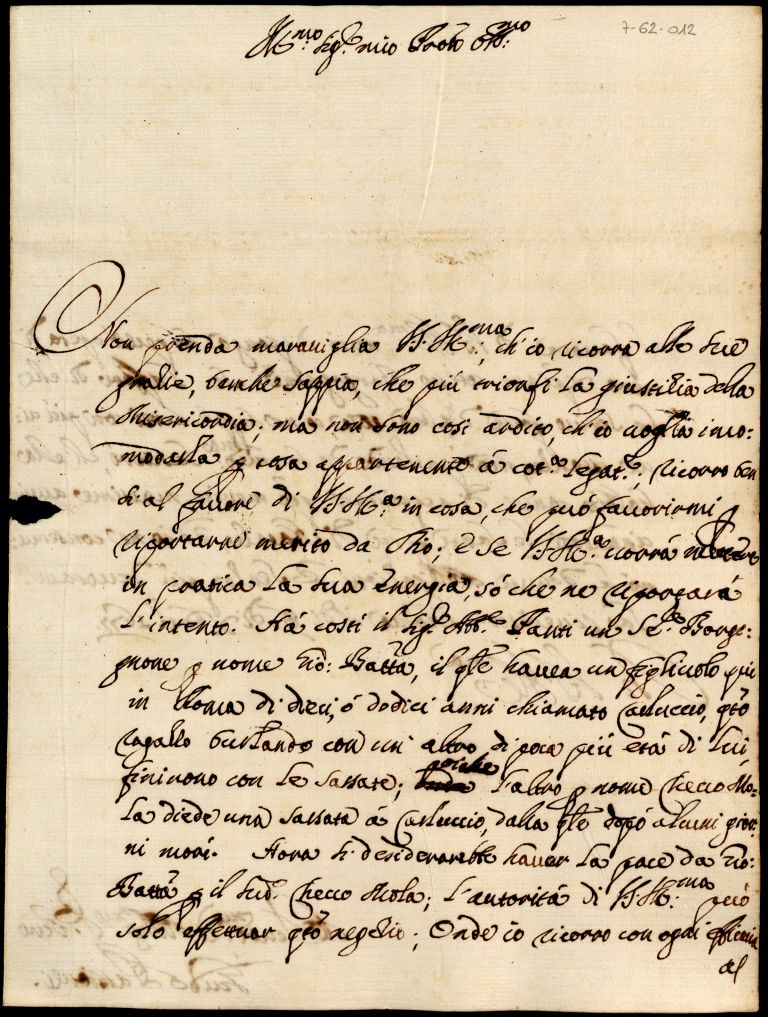 7-62-012
Ill.mo Sig.r mio Prōn Oss.mo
Non prenda marauiglia V.S. Ill.ma: ch'io ricorra alle sue
gratie, benche sappia, che più trionfi la giustitia della
Misericordia; ma non sono così ardito, ch'io uoglia inco=
modarla p cosa appartenente à cot.a Legat.e, ricorro ben
si al fauore di V.S. Ill.a: in cosa, che può fauorirmi p
riportarne merito da Dio; E se V.S. Ill.a uorrà mettere
in pratica la sua Energia, sò che ne riportarà
l'intento. Hà costì il Sig.r Abb.e Santi un Se.re Borgo=
gnone p nome Gio: Batta, il qle haueua un figliuolo qui
in Roma di dieci, ó dodici anni chiamato Carluccio, qto
ragazzo burlando con un' altro di poca più età di lui,
finirono con le sassate; poiche l'altro p nome Checco Mo=
la diede una sassata à Carluccio, dalla qle dopò alcuni gior=
ni morì. Hora si desiderarebbe hauer la pace da Gio:
Batta p il sud.o Checco Mola; l'autorità di V.S. Ill.ma: può
solo effettuar qto negotio; Onde io ricorro con ogni efficacia
al